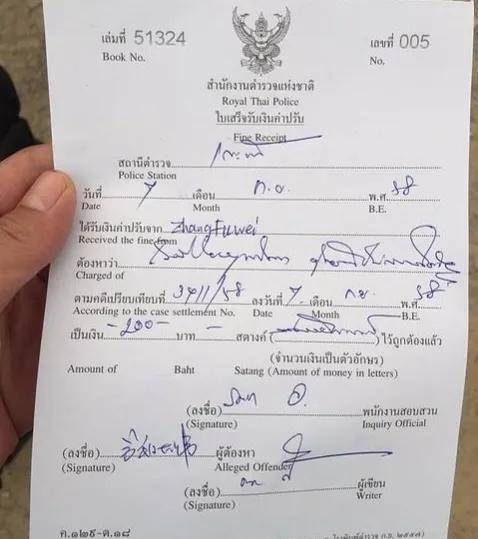 เล่มที่ 51324 เลขที่ 005
Book No. No.
สำนักงานตำรวจแห่งชาติ
Royal Thai Police
ใบเสร็จรับเงินค่าปรับ
Fine Receipt
สถานีตำรวจ
Police Station
วันที่ 7 เดือน ก.ย. พ.ศ. 58
Date Month B.E.
ได้รับเงินค่าปรับจาก Zhang Fuwei
Received the fine from
ต้องหาว่า
Charged of
ตามคดีเปรียบเทียบที่ 3911/58 ลงวันที่ 7 เดือน กย. พ.ศ. 58
According to the case settlement No. Date Month B.E.
เป็นเงิน -200- บาท - สตางค์ ( ) ไว้ถูกต้องแล้ว
(จำนวนเงินเป็นตัวอักษร)
Amount of Baht Satang (Amount of money in letters)
(ลงชื่อ) พนักงานสอบสวน
(Signature) Inquiry Official
(ลงชื่อ) ผู้ต้องหา
(Signature) Alleged Offender
(ลงชื่อ) ผู้เขียน
(Signature) Writer
ค.๑๒๙-ต.๑๘